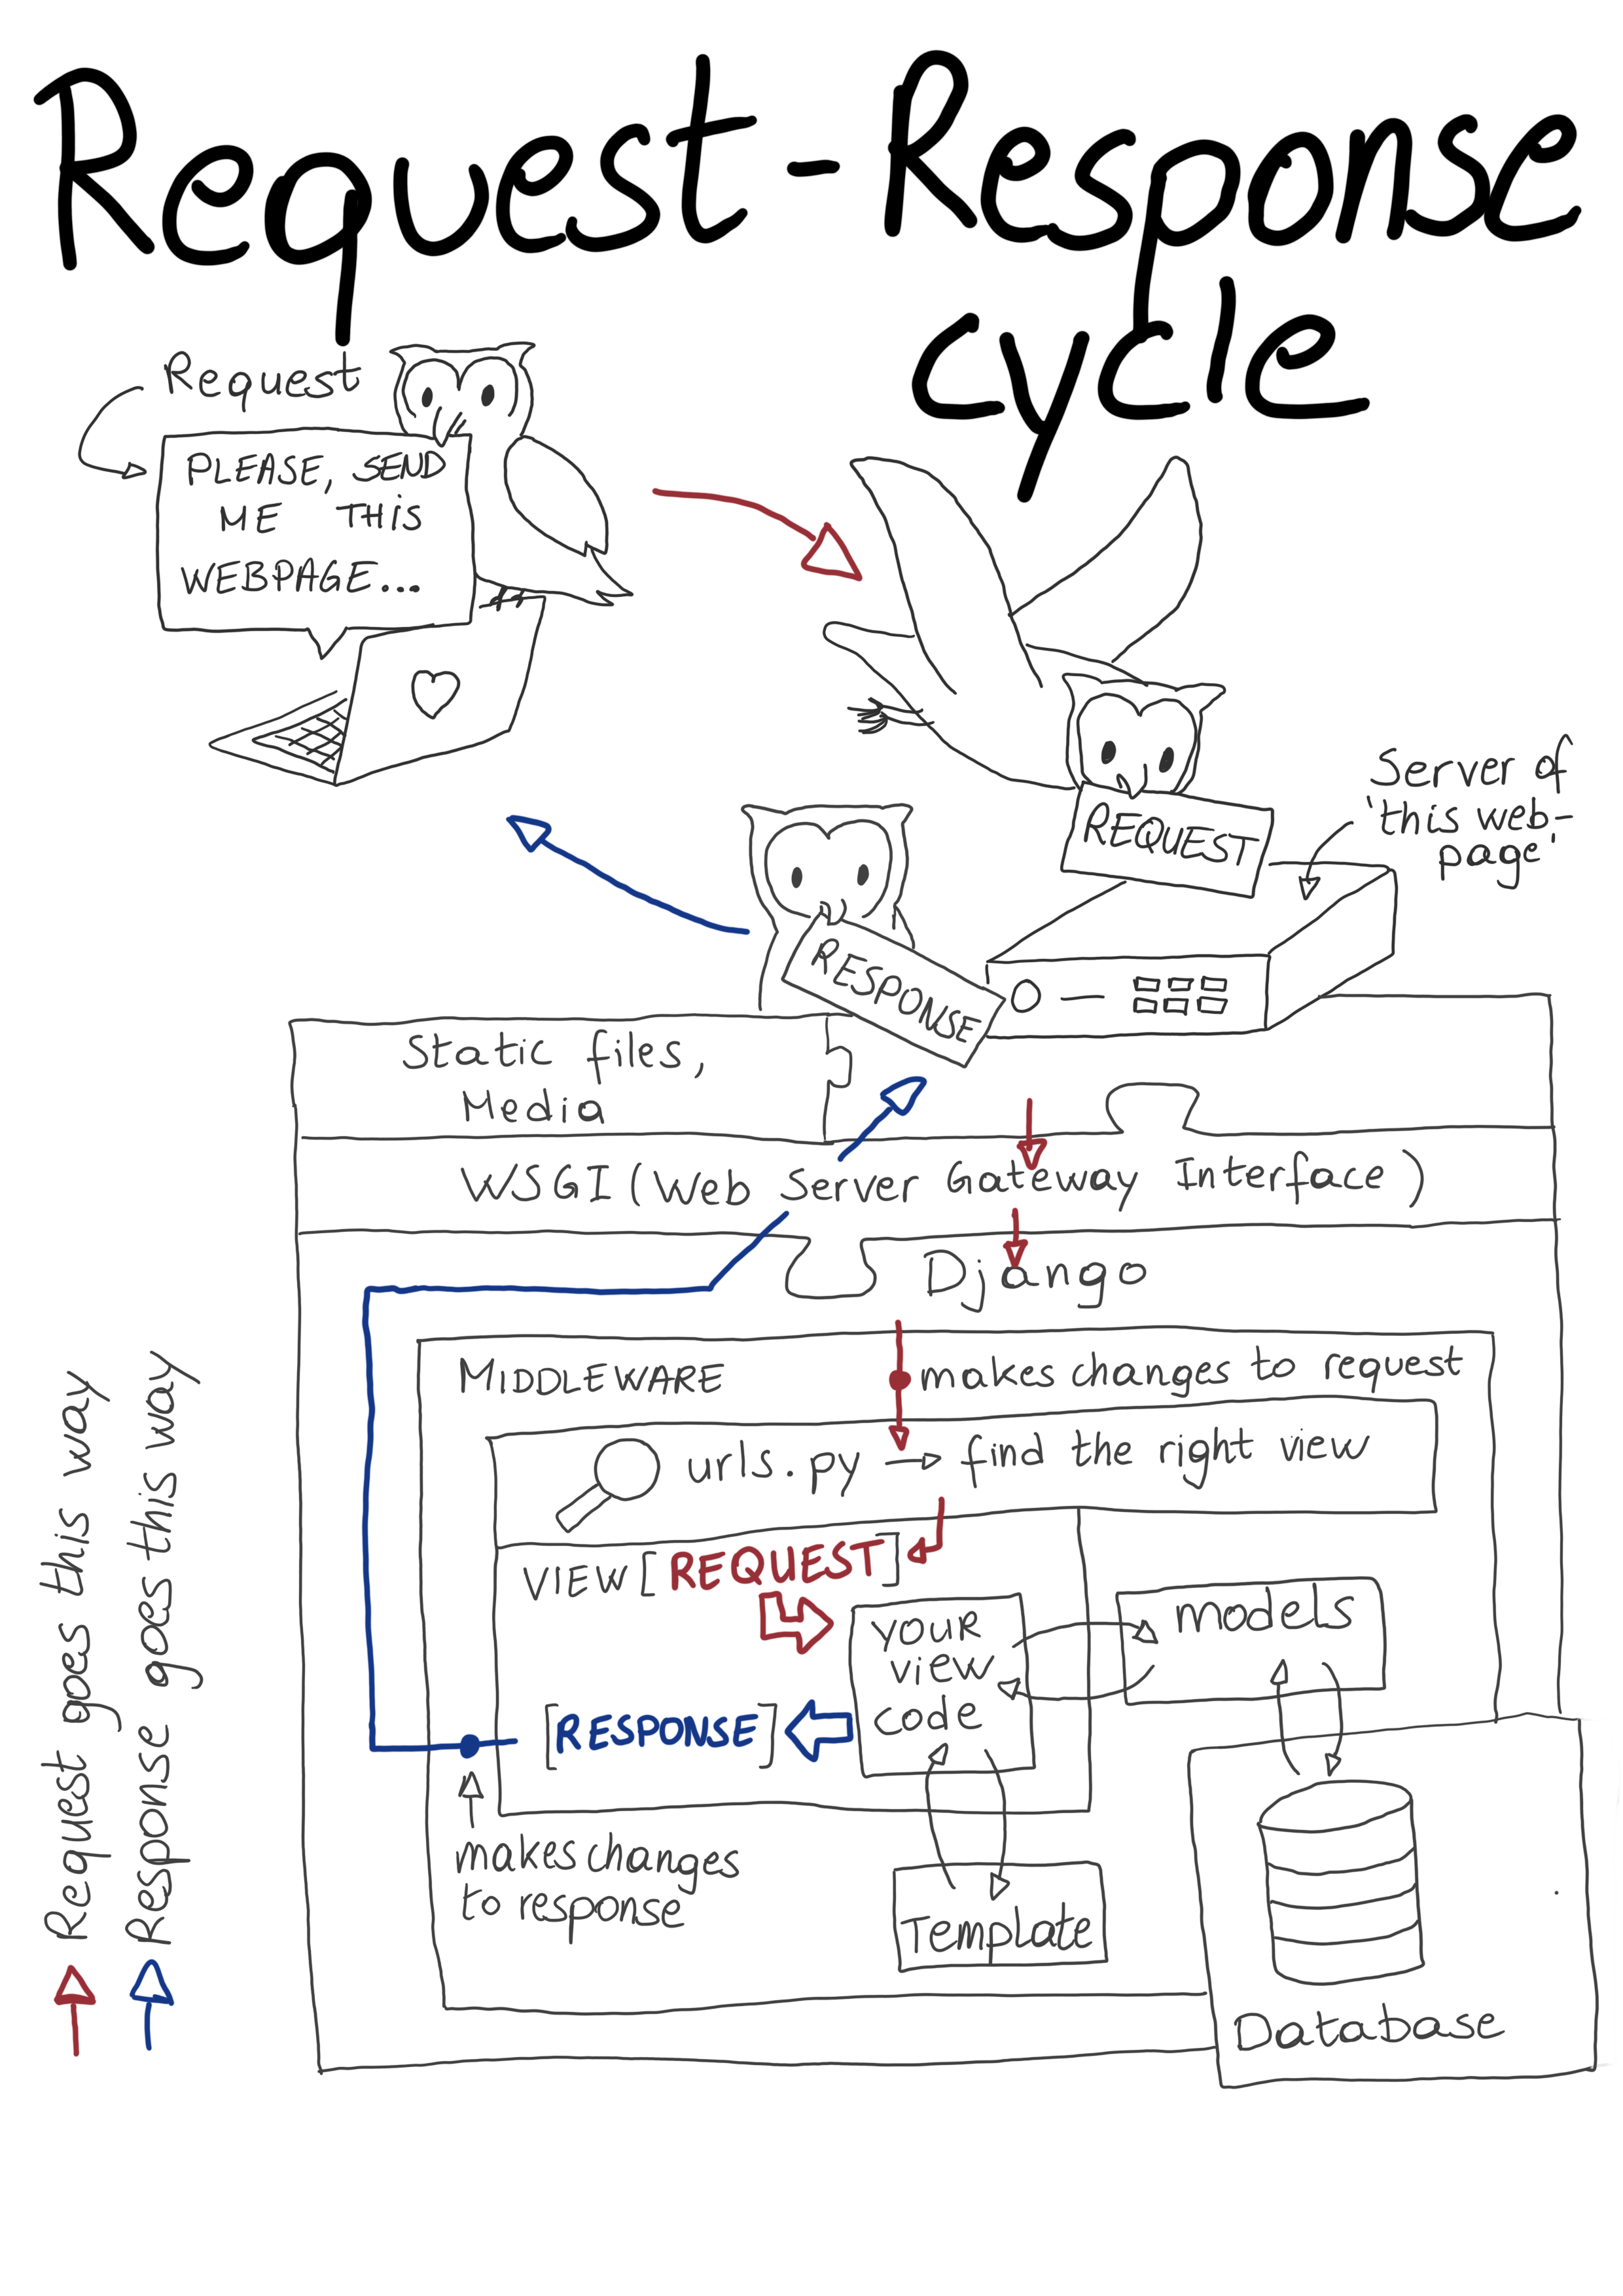 Request-Response
cycle
Request
PLEASE, SEND
ME THIS
WEBPAGE...
REQUEST
Server of
'this web-
page'
RESPONSE
Static files,
Media
WSGI (Web Server Gateway Interface)
Django
MIDDLEWARE
makes changes to request
urls.py → find the right view
VIEW [REQUEST]
YOUR
view
code
models
[RESPONSE]
makes changes
to response
Template
Database
Request goes this way
Response goes this way